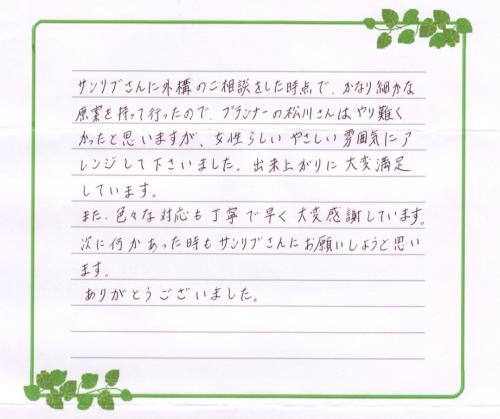 サンリブさんに外構のご相談をした時点で、かなり細かな
原案を持って行ったので、プランナーの松川さんはやり難く
かったと思いますが、女性らしいやさしい雰囲気にア
レンジして下さいました。出来上がりに大変満足
しています。
また、色々な対応も丁寧で早く大変感謝しています。
次に何かあった時もサンリブさんにお願いしようと思い
ます。
ありがとうございました。